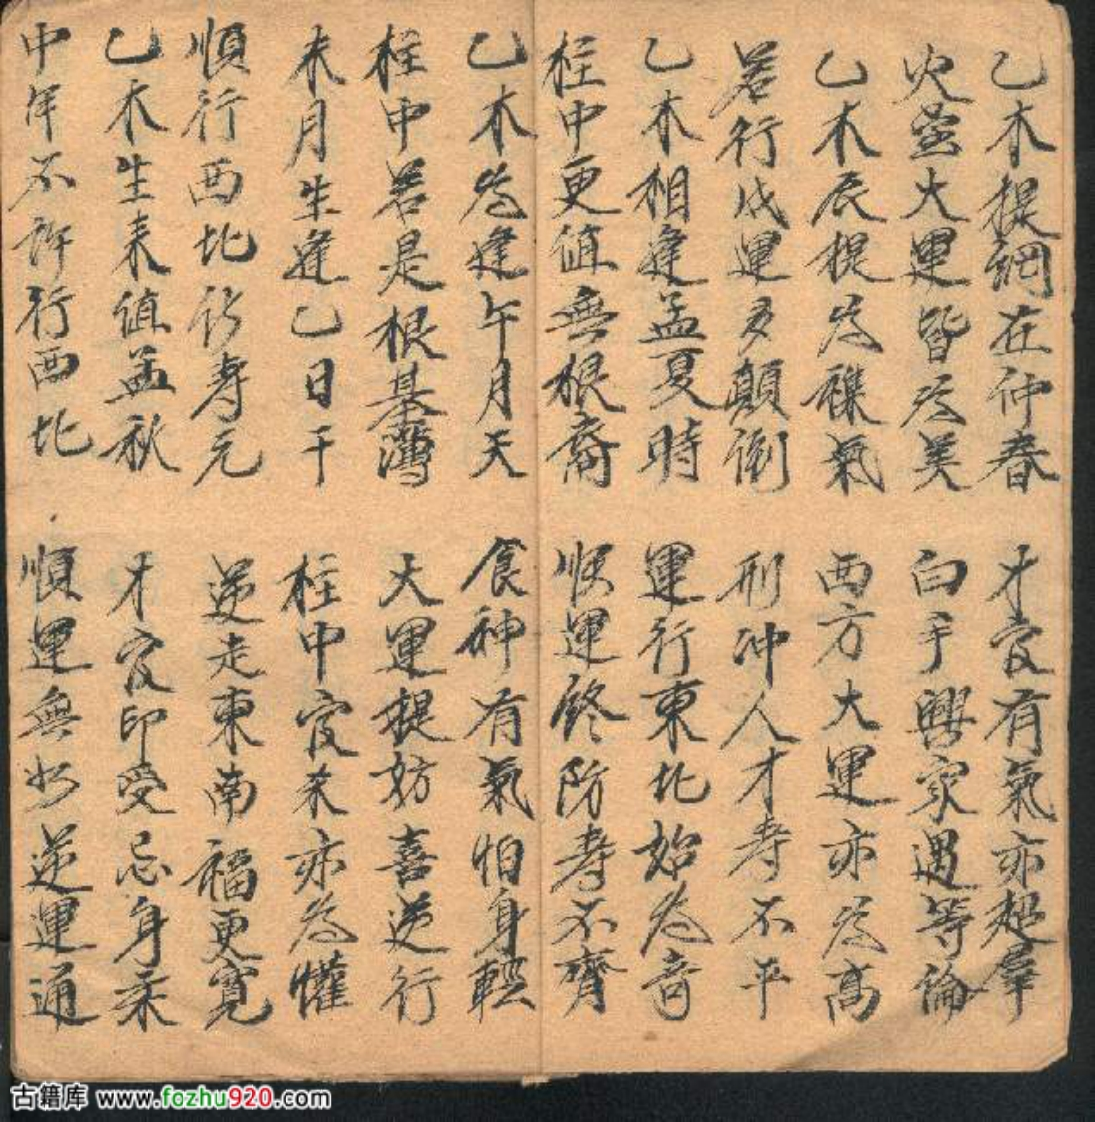 乙木提綱在仲春 才官有氣亦超羣
火金大運皆為美 白手興家遇等倫
乙木辰提為雜氣 西方大運亦為高
若行戊運多顛倒 刑沖人才寿不平
乙木相逢孟夏時 運行東北始為奇
柱中更值無根裔 順運終防寿不齊
乙木為逢午月天 食神有氣怕身輕
柱中若是根基薄 大運提妨喜逆行
未月生逢乙日干 柱中官杀亦為懽
順行西北 寿元 逆走東南福更寛
乙木生来值孟秋 才官印受忌身柔
中年不許行西北 順運無如逆運通
古籍库 www.fozhu920.com